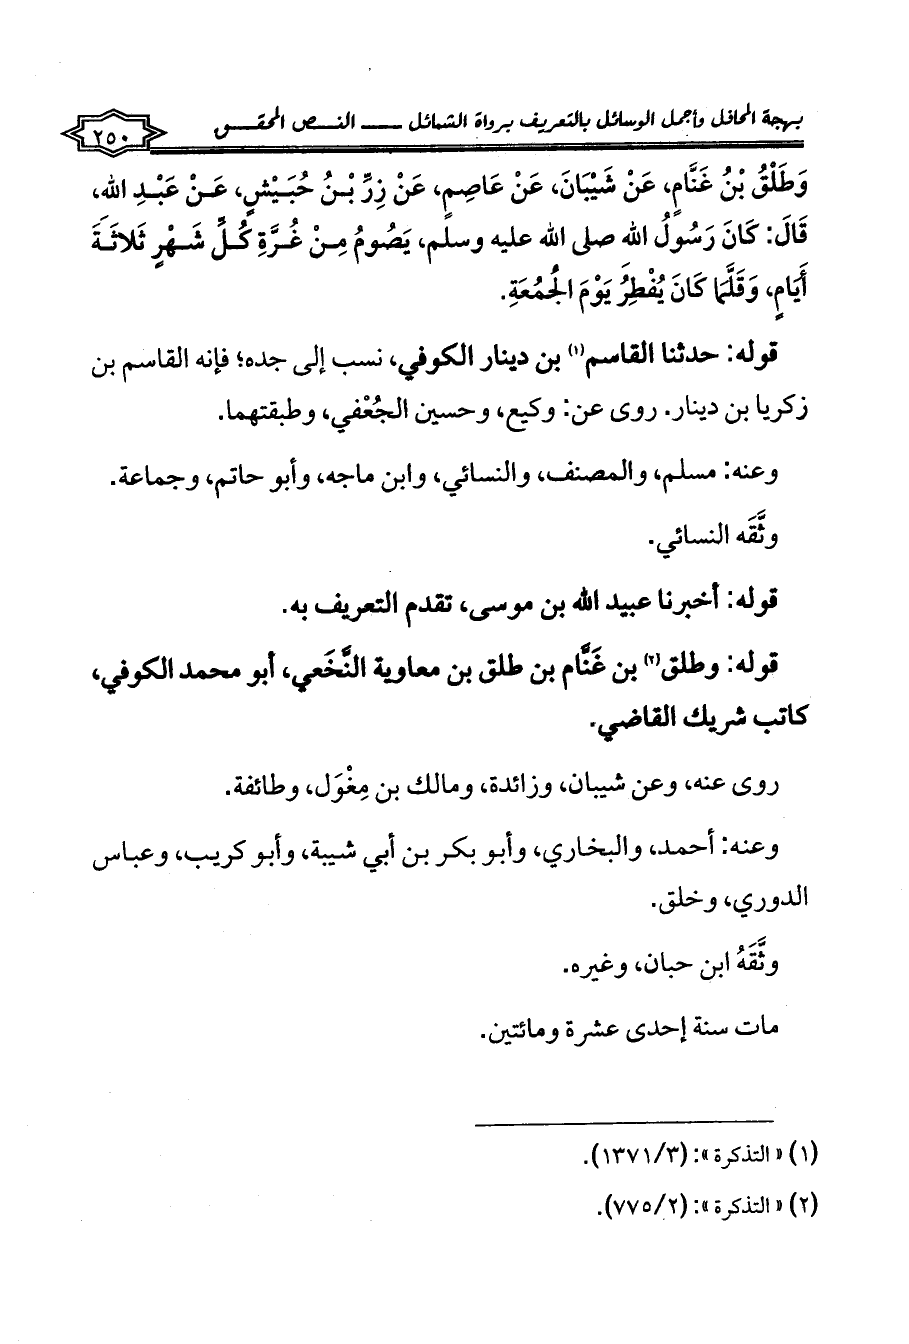 بهجة المحافل وأجمل الوسائل بالتعريف برواة الشمائل ــــ النـــص المحقـــق
٢٥٠
وَطَلْقُ بْنُ غَنَّامٍ، عَنْ شَيْبَانَ، عَنْ عَاصِمٍ، عَنْ زِرِّ بْنُ حُبَيْشٍ، عَنْ عَبْدِ الله،
قَالَ: كَانَ رَسُولُ الله صلى الله عليه وسلم، يَصُومُ مِنْ غُرَّةِ كُلِّ شَهْرٍ ثَلَاثَةَ
أَيَامٍ، وَقَلَّمَا كَانَ يُفْطِرُ يَوْمَ الجُمُعَةِ.
قوله: حدثنا القاسم(١) بن دينار الكوفي، نسب إلى جده؛ فإنه القاسم بن
زكريا بن دينار. روى عن: وكيع، وحسين الجُعْفي، وطبقتهما.
وعنه: مسلم، والمصنف، والنسائي، وابن ماجه، وأبو حاتم، وجماعة.
وثَّقَه النسائي.
قوله: أخبرنا عبيد الله بن موسى، تقدم التعريف به.
قوله: وطلق(٢) بن غَنَّام بن طلق بن معاوية النَّخَعي، أبو محمد الكوفي،
كاتب شريك القاضي.
روى عنه، وعن شيبان، وزائدة، ومالك بن مِغْوَل، وطائفة.
وعنه: أحمد، والبخاري، وأبو بكر بن أبي شيبة، وأبو كريب، وعباس
الدوري، وخلق.
وثَّقَهُ ابن حبان، وغيره.
مات سنة إحدى عشرة ومائتين.
(١) «التذكرة»: (١٣٧١/٣).
(٢) «التذكرة»: (٧٧٥/٢).